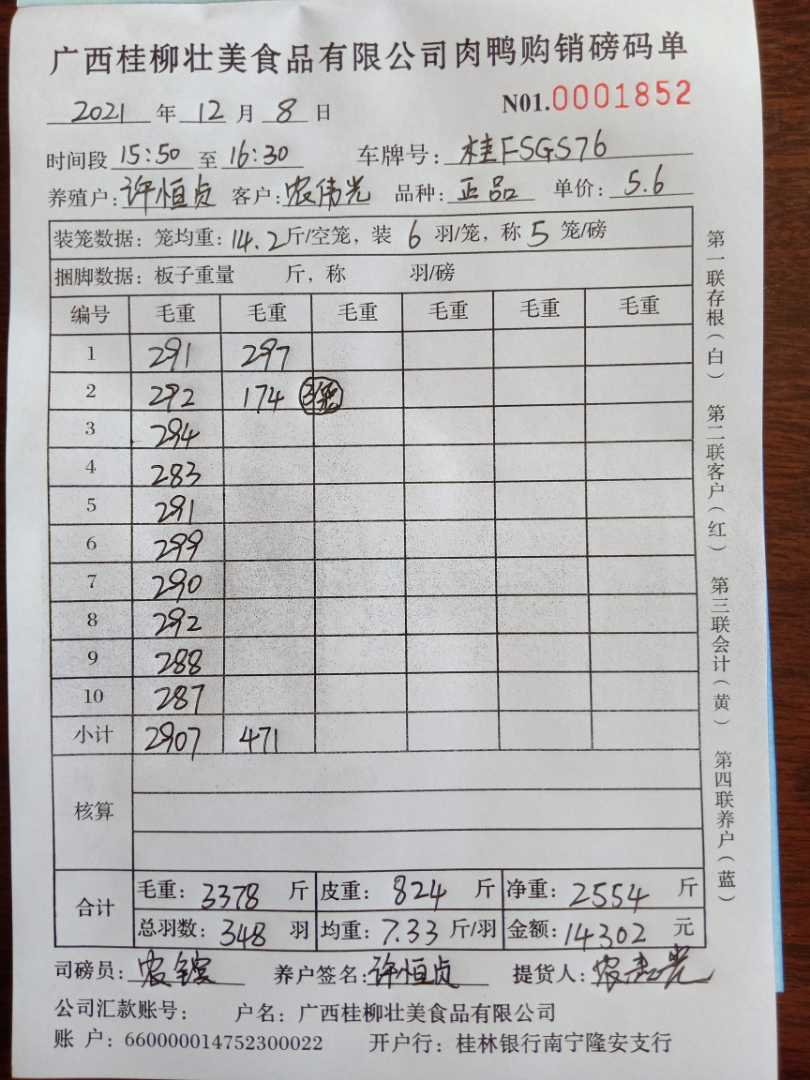 广西桂柳壮美食品有限公司肉鸭购销磅码单
2021 年 12 月 8 日 N01.0001852
时间段 15:50 至 16:30 车牌号: 桂FSGS76
养殖户: 许恒贞 客户: 农伟光 品种: 正品 单价: 5.6
装笼数据: 笼均重: 14.2斤/空笼, 装 6 羽/笼, 称 5 笼/磅
捆脚数据: 板子重量 斤, 称 羽/磅
编号 毛重 毛重 毛重 毛重 毛重 毛重
1 291 297
2 292 174 3笼
3 294
4 283
5 291
6 299
7 290
8 292
9 288
10 287
小计 2907 471
核算
合计 毛重: 3378 斤 皮重: 824 斤 净重: 2554 斤
总羽数: 348 羽 均重: 7.33 斤/羽 金额: 14302 元
司磅员: 养户签名: 许恒贞 提货人: 农伟光
公司汇款账号: 户名: 广西桂柳壮美食品有限公司
账 户: 660000014752300022 开户行: 桂林银行南宁隆安支行
第一联存根(白) 第二联客户(红) 第三联会计(黄) 第四联养户(蓝)